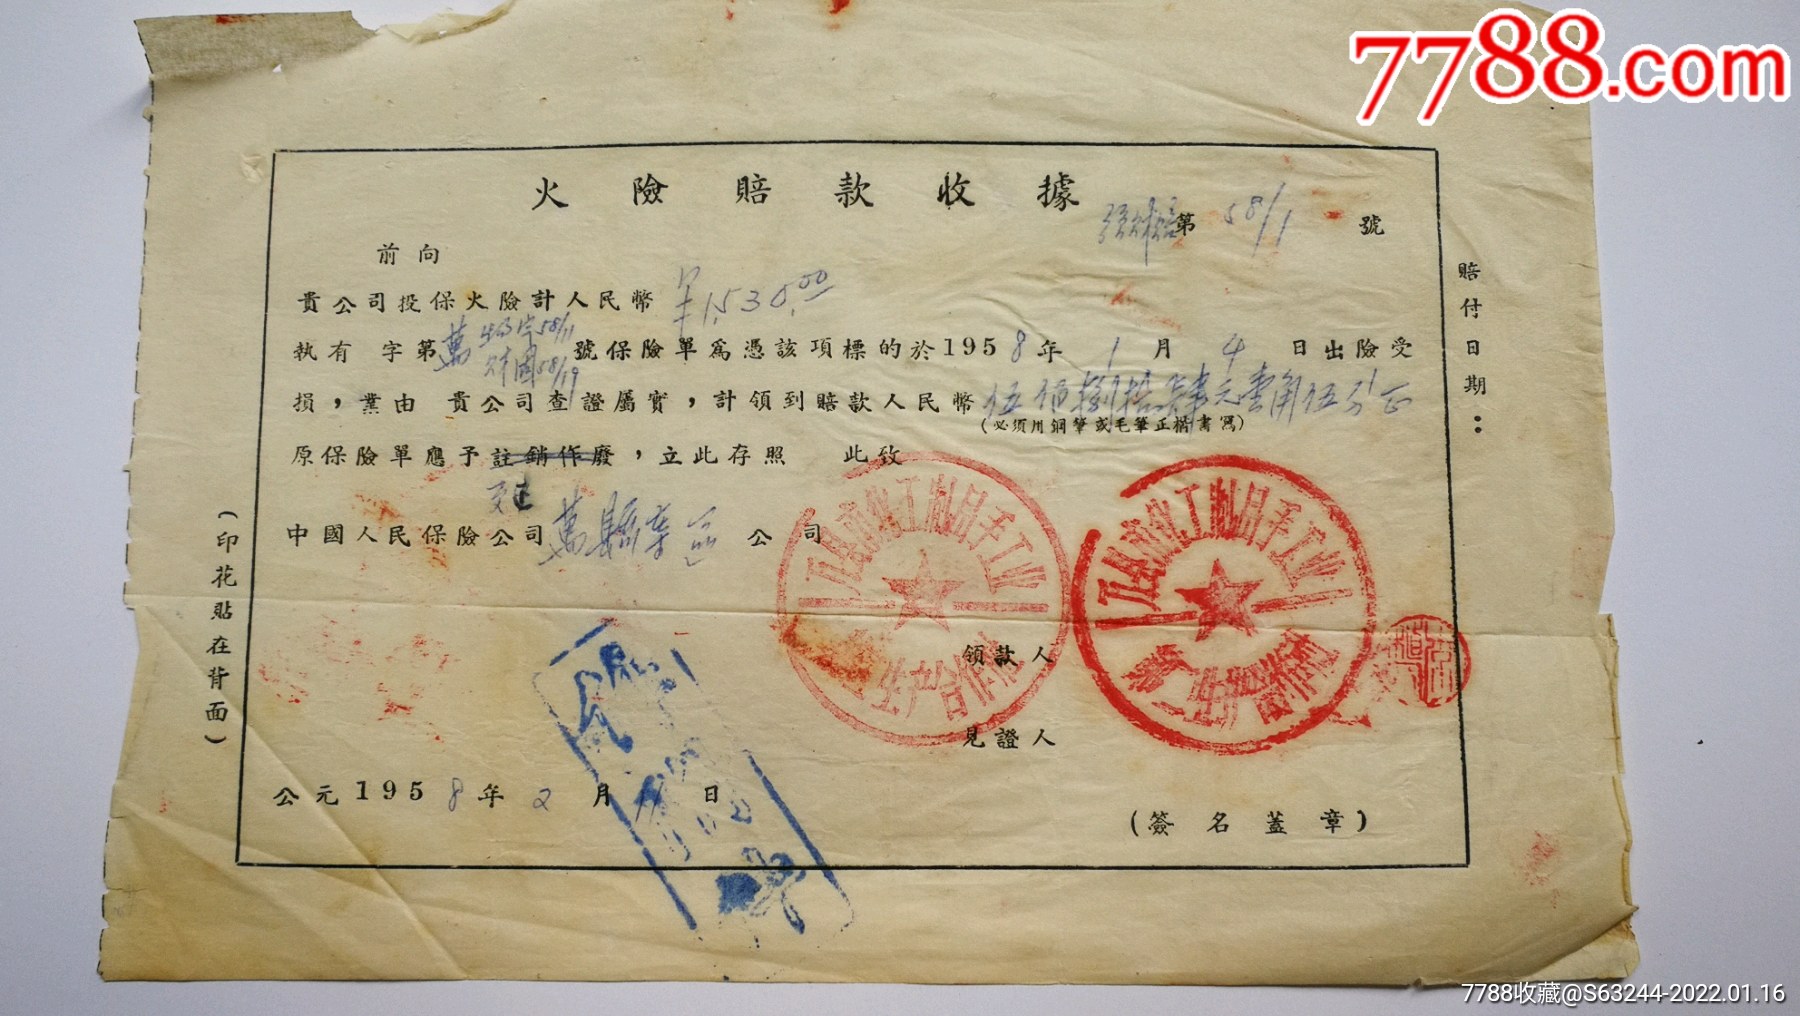 7788.com
火險賠款收據
第 58/1 號
前向
貴公司投保火險計人民幣 ¥1,530.00
執有 字第萬 58/11 58/19 號保險單為憑該項標的於1958年1月4日出險受
損,業由 貴公司查證屬實,計領到賠款人民幣伍佰捌拾肆元壹角伍分正
(必須用鋼筆或毛筆正楷書寫)
原保險單應予註銷作廢,立此存照 此致
中國人民保險公司萬縣專區公司
領款人
見證人
公元1958年2月 日
(簽名蓋章)
賠付日期:
(印花貼在背面)
化工制品手工业
生产合作社
化工制品手工业
生产合作社
7788收藏@S63244-2022.01.16